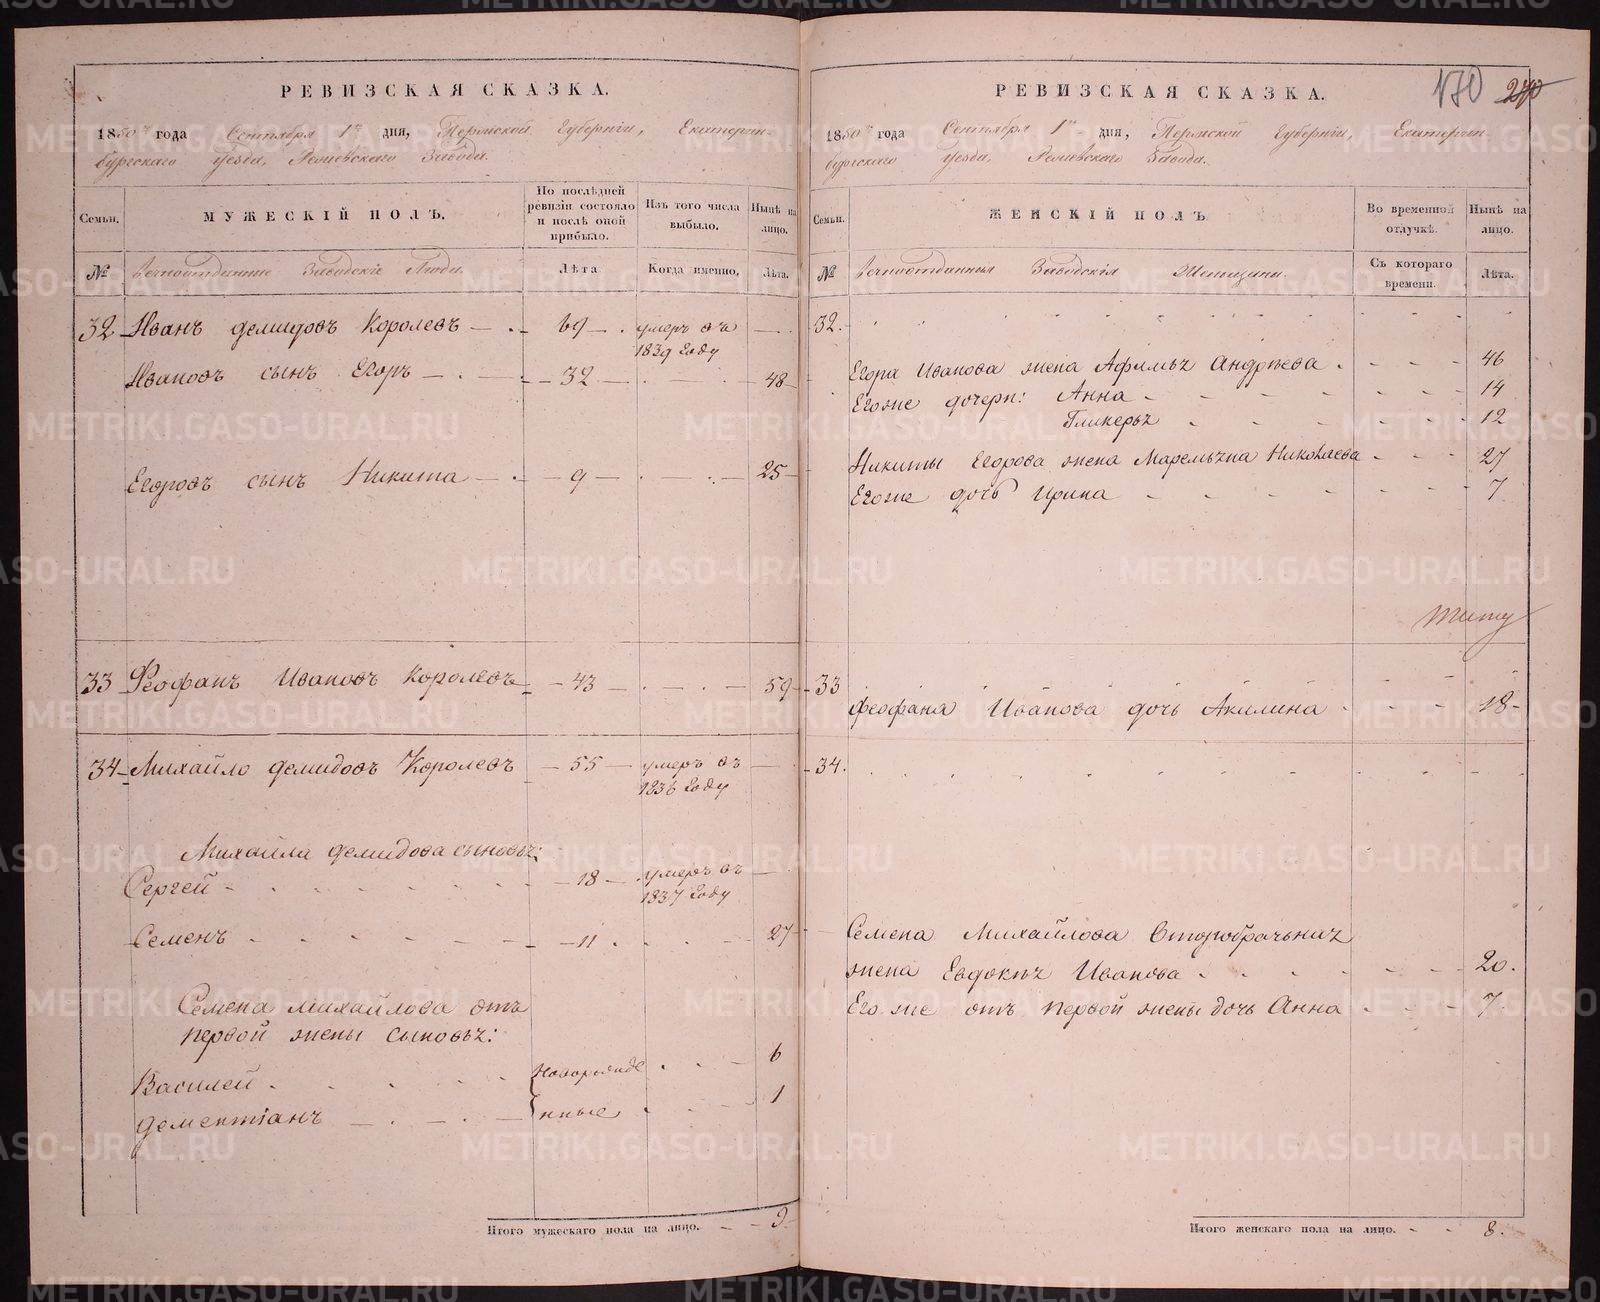 РЕВИЗСКАЯ СКАЗКА.
1850 года Сентября 1го дня, Пермской Губернiи, Екатерин-
бургскаго уезда, Режевскаго Завода.
Семьи.
МУЖЕСКIЙ ПОЛЪ.
По послѣдней ревизiи состояло и послѣ оной прибыло.
Изъ того числа выбыло.
Нынѣ на лицо.
№
Вечноотданные Заводскiе Люди.
Лѣта
Когда именно.
Лѣта.
32 Иванъ Демидовъ Королевъ 69 умеръ въ
1839 году
Ивановъ сынъ Егоръ 32 48
Егоровъ сынъ Никита 9 25
33 Феофанъ Ивановъ Королевъ 43 59
34 Михайло Демидовъ Королевъ 55 умеръ въ
1836 году
Михайла Демидова сыновья:
Сергей 18 умеръ въ
1837 году
Семенъ 11 27
Семена Михайлова отъ
первой жены сыновья:
Василей новорожде 6
Дементiанъ нные 1
Итого мужескаго пола на лицо. 9
РЕВИЗСКАЯ СКАЗКА.
170 270
1850 года Сентября 1го дня, Пермской Губернiи, Екатерин-
бургскаго уезда, Режевскаго Завода.
Семьи.
ЖЕНСКIЙ ПОЛЪ
Во временной отлучкѣ.
Нынѣ на лицо.
№
Вечноотданныя Заводскiя Женщины.
Съ котораго времени.
Лѣта.
32.
Егора Иванова жена Афимья Андрѣева 46
Егоже дочери: Анна 14
Гликерья 12
Никиты Егорова жена Маремьяна Николаева 27
Егоже дочь Ирина 7
33
Феофана Иванова дочь Акилина 18
34.
Семена Михайлова Второбрачная
жена Евдокья Иванова 20.
Его же отъ первой жены дочь Анна 7
Итого женскаго пола на лицо. 8.
METRIKI.GASO-URAL.RU